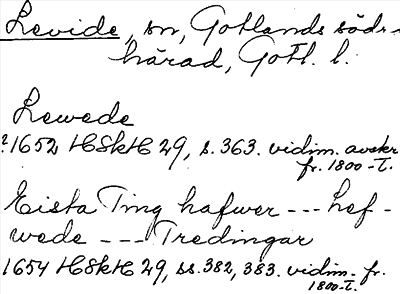 Levide, sn, Gotlands södr
härad, Gotl. l.
Lewede
?1652 HSkH 29, s. 363. vidim. avskr
fr. 1800-t.
Eista Ting hafwer --- Lef-
wede --- Tredingar
1654 HSkH 29, ss. 382, 383. vidim. fr.
1800-t.